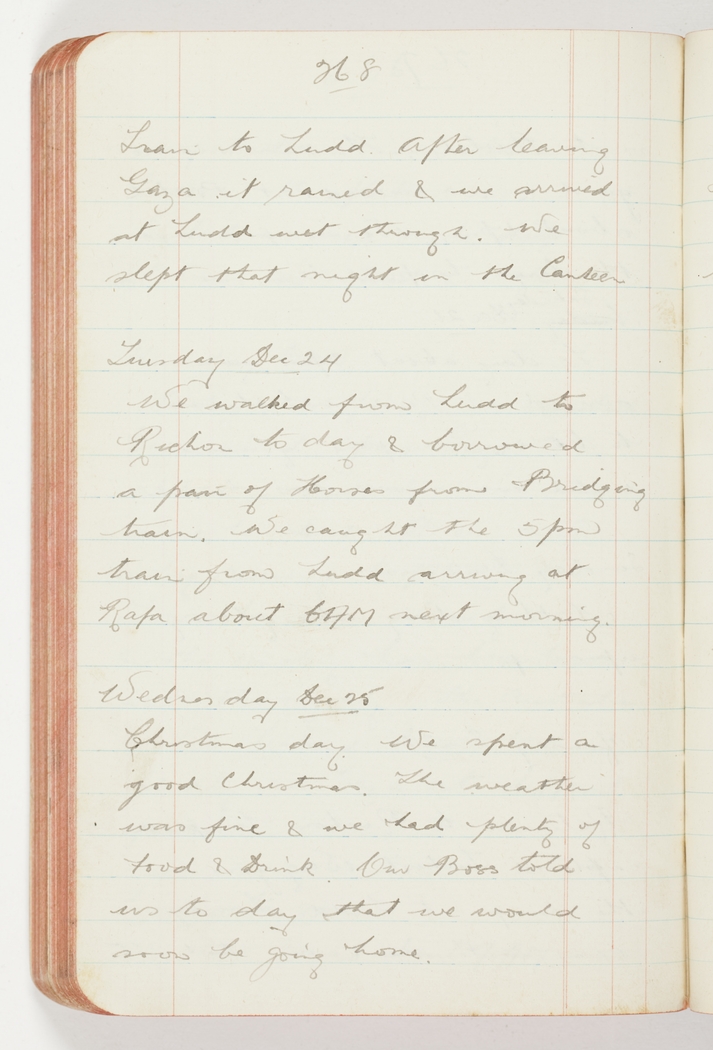 268
Train to Ludd. After leaving
Gaza it rained & we arrived
at Ludd wet through. We
slept that night in the Canteen
Tuesday Dec 24
We walked from Ludd to
Richon to day & borrowed
a pair of Horses from Bridging
train. We caught the 5pm
train from Ludd arriving at
Rafa about 6AM next morning.
Wednesday Dec 25
Christmas day. We spent a
good Christmas. The weather
was fine & we had plenty of
Food & Drink. Our Boss told
us to day that we would
soon be going home.